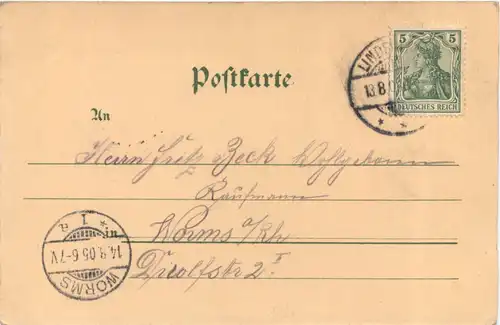 5 5
DEUTSCHES REICH
LINDE
13.8.0
Postkarte
An
Herrn Fritz Beck Wohlgeboren
Kaufmann
in
Worms a/Rh
2 I
WORMS
14.8.05.6-7V.
* 1 a